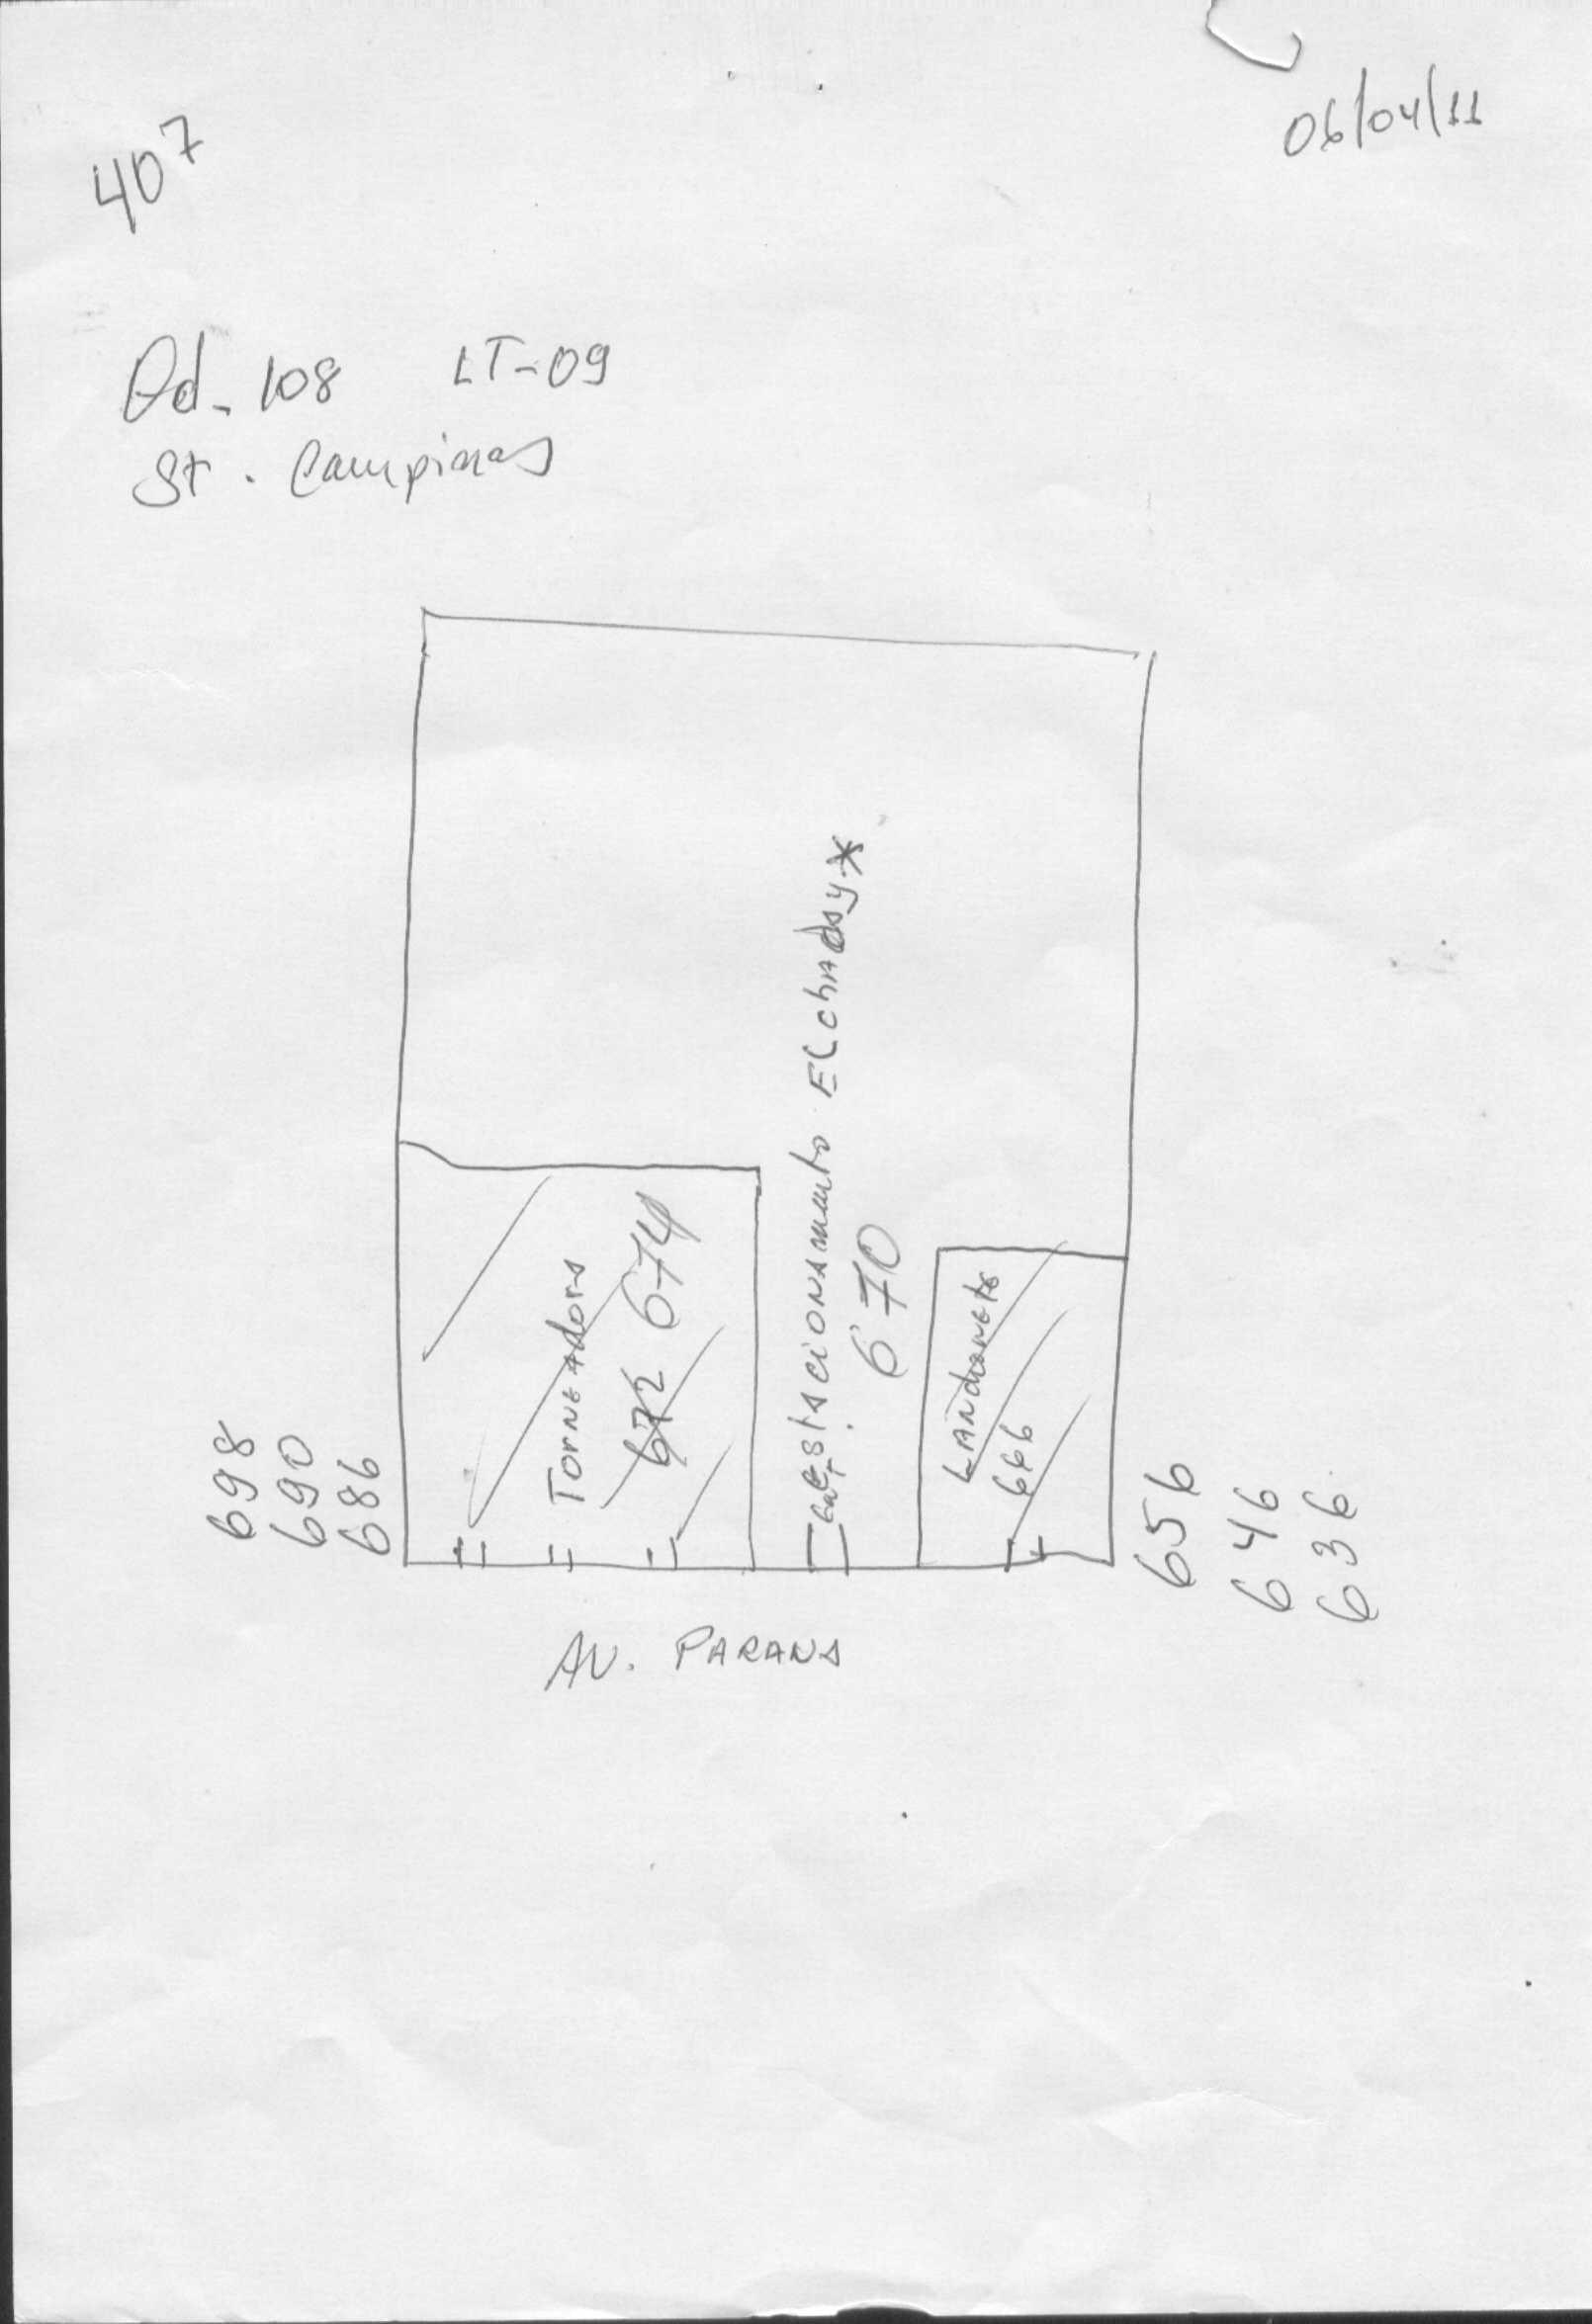 407
06/04/11
Qd. 108 LT-09
St. Campinas
698
690
686
Torneadora
672 674
Estacionamento ELchADAy *
Ent.
670
LANchonete
666
656
646
636
AV. PARANA